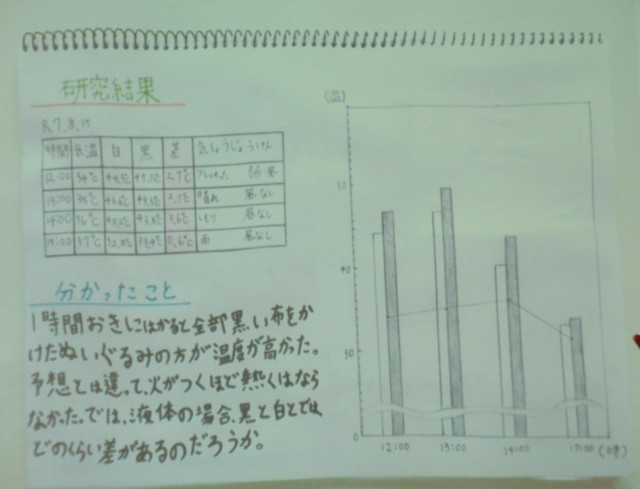 研究結果
R7.8.15
時間 気温 白 黒 差 気しょうじょうけん
12:00 34℃ 2.7℃
13:00 35℃ 晴れ 風なし
14:00 36℃ 3.6℃ くもり 風なし
15:00 0.6℃ 雨 風なし
分かったこと
1時間おきにはかると全部黒い布をか
けたぬいぐるみの方が温度が高かった。
予想とは違って、火がつくほど熱くはなら
なかった。では、液体の場合、黒と白とでは、
どのくらい差があるのだろうか。
(温)
50
40
30
0
12:00 13:00 14:00 15:00 (時)